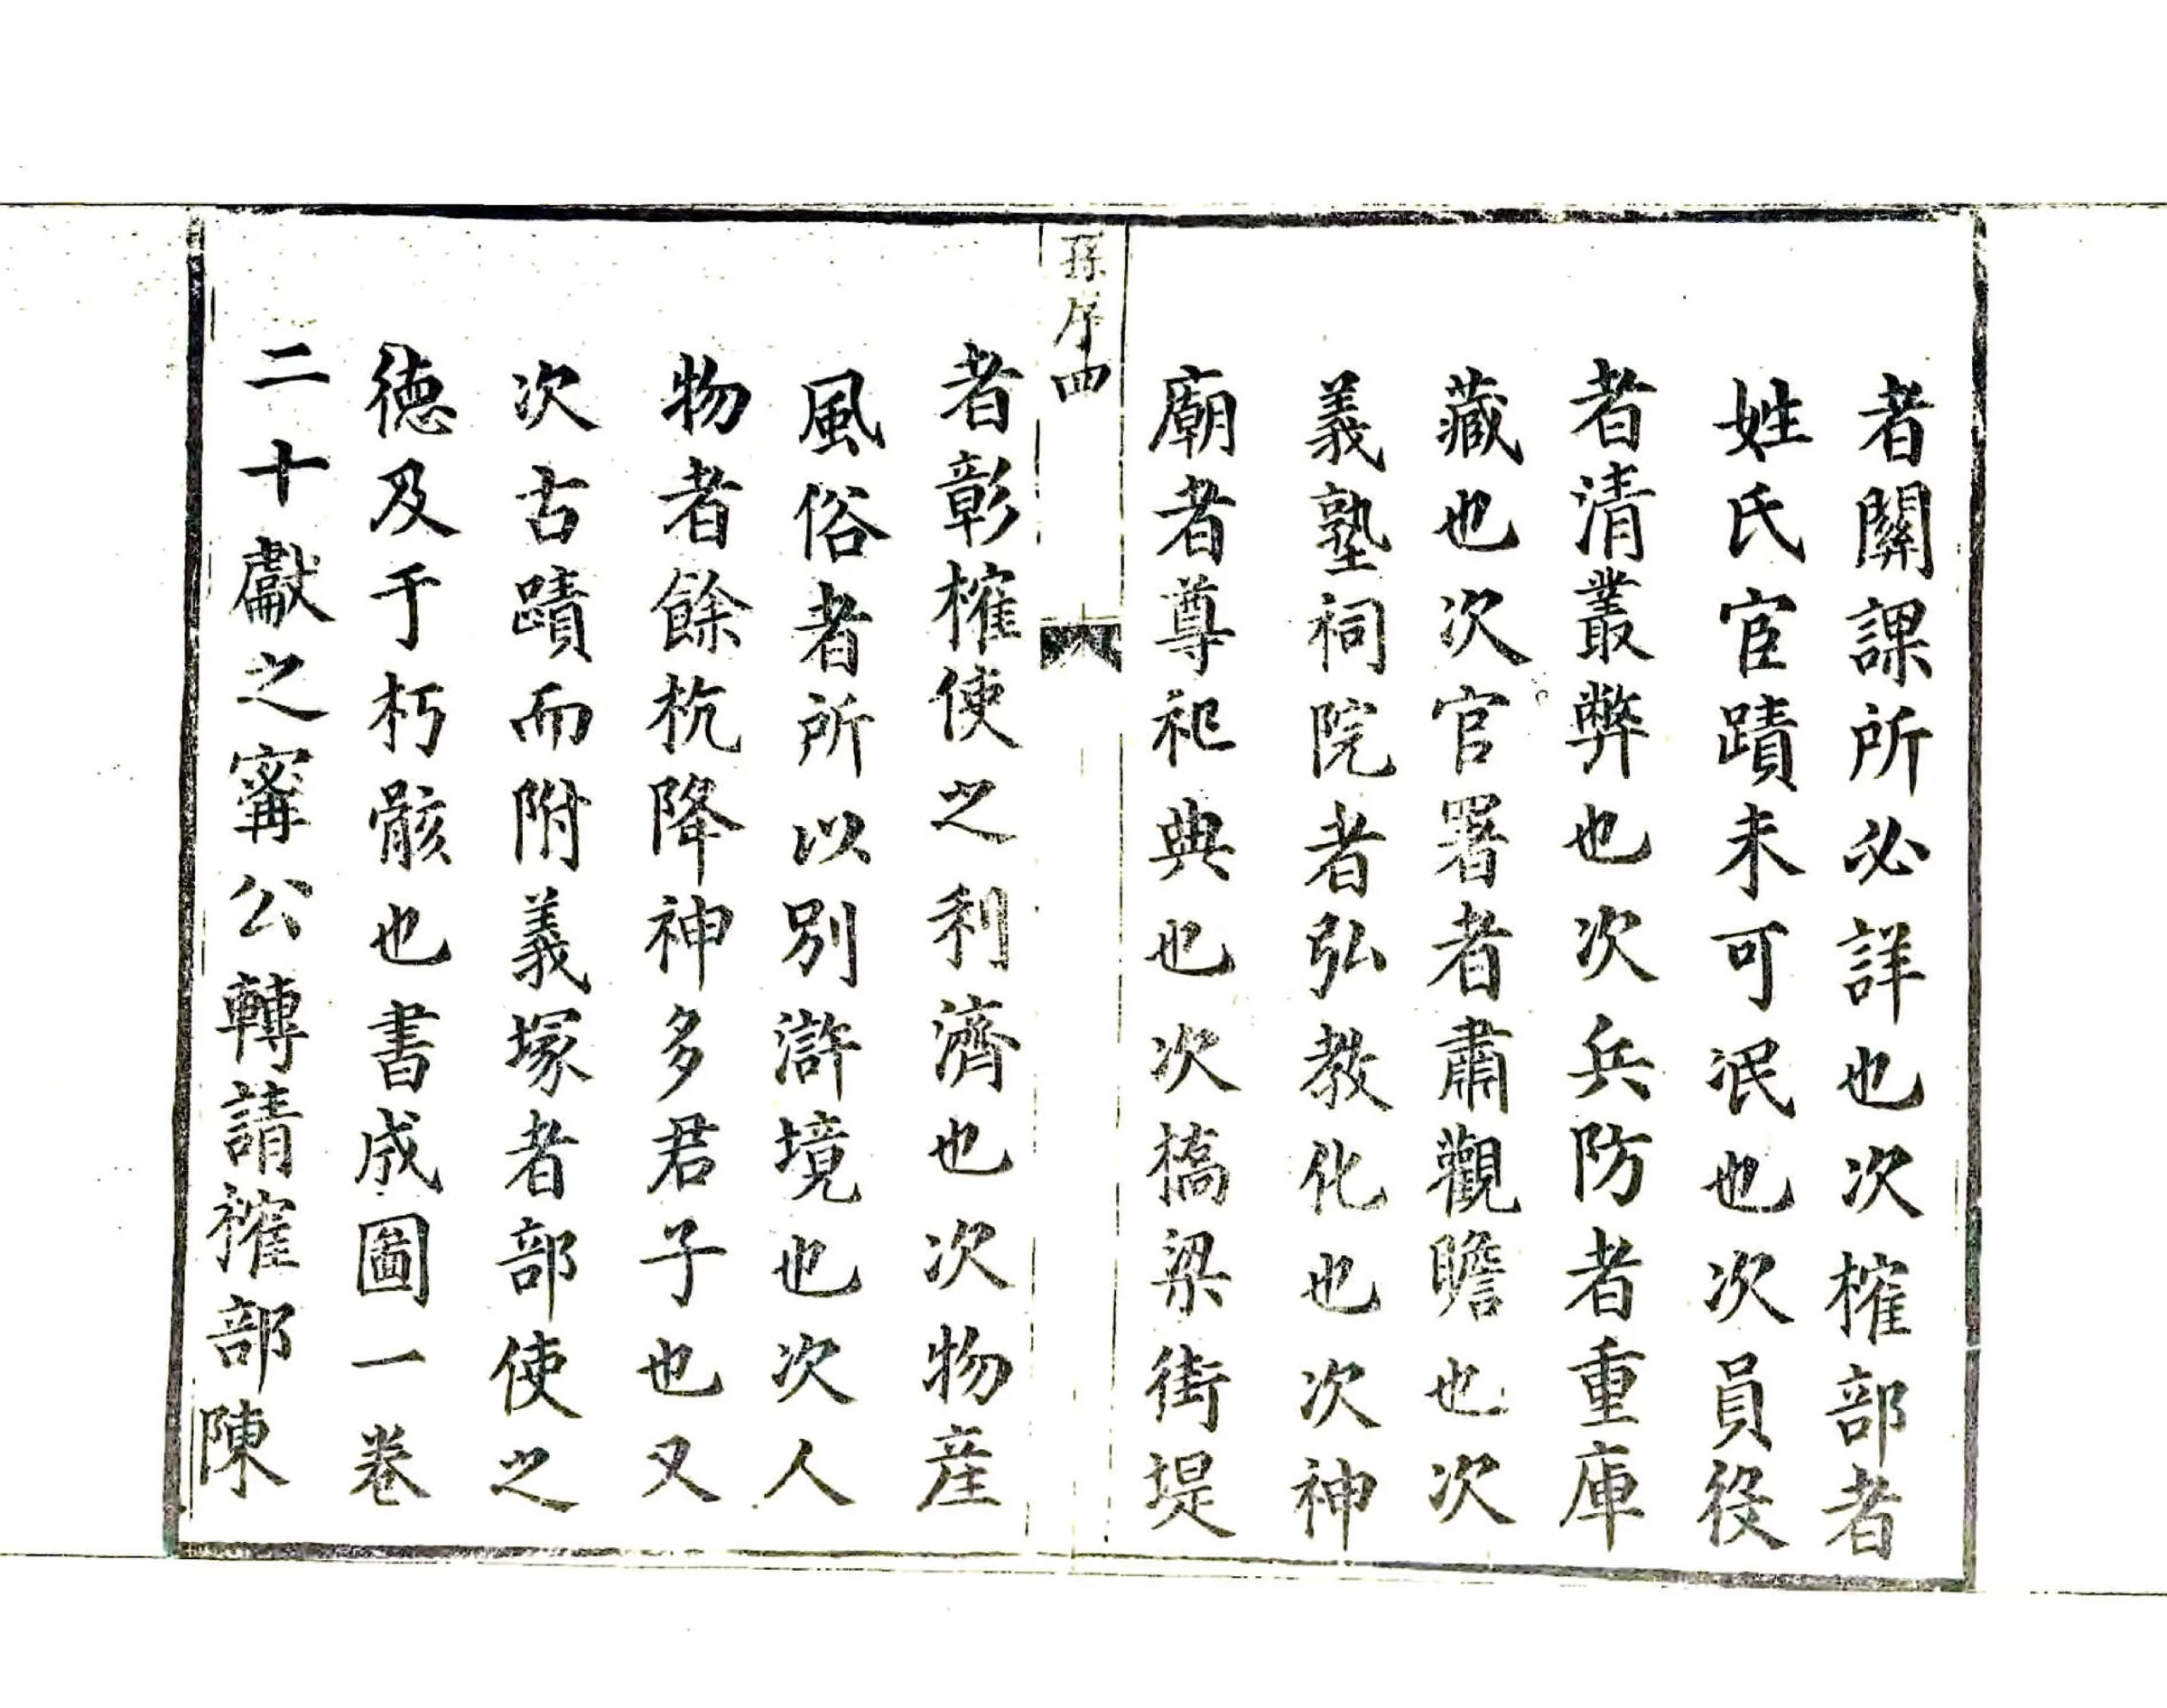 者關課所必詳也次榷部者
姓氏宦蹟未可泯也次員役
者清叢弊也次兵防者重庫
藏也次官署者肅觀瞻也次
義塾祠院者弘教化也次神
廟者尊祀典也次橋梁街堤
孫序四
者彰榷使之利濟也次物產
風俗者所以別滸境也次人
物者餘杭降神多君子也又
次古蹟而附義塚者部使之
德及于朽骸也書成圖一卷
二十獻之寗公轉請榷部陳